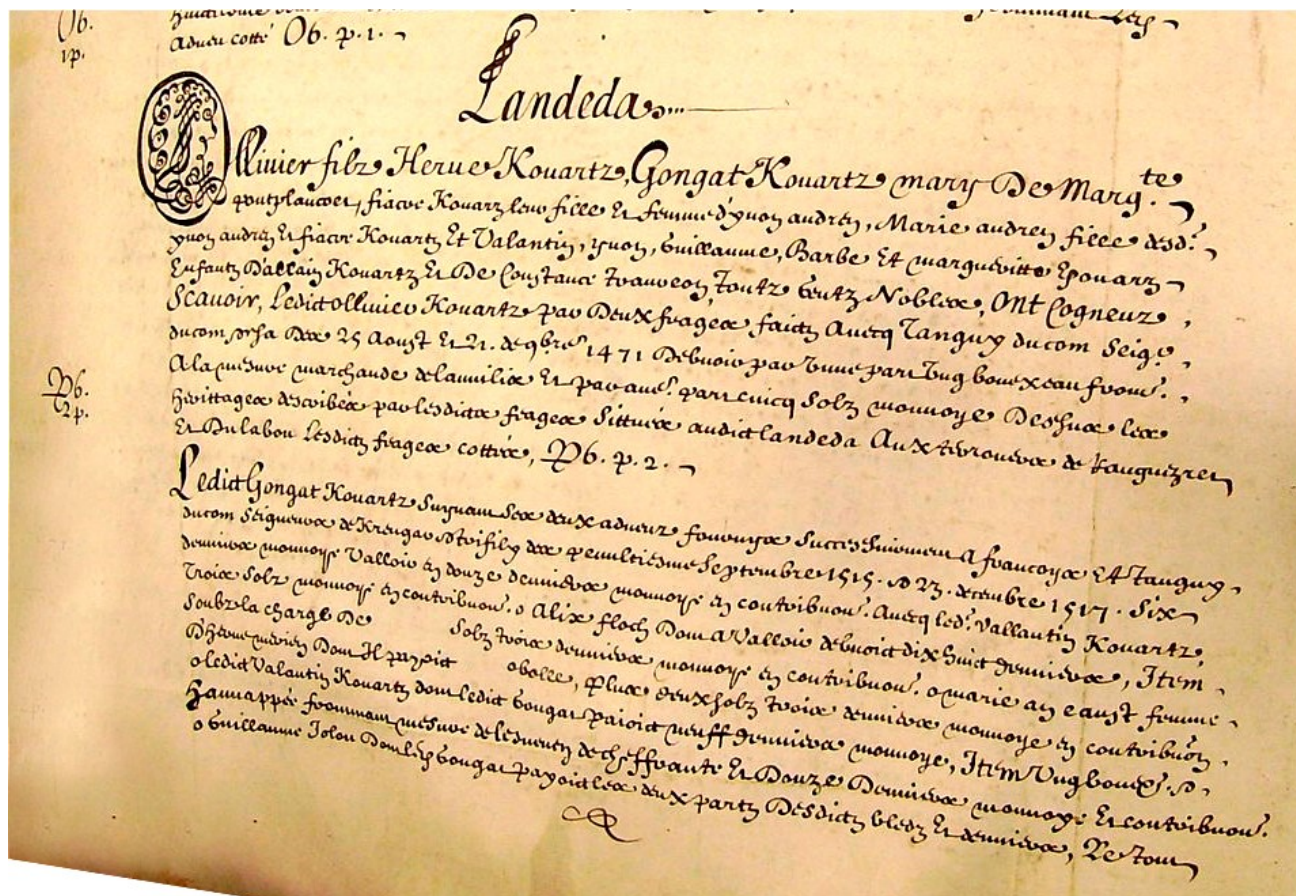 O6.
1p.
Adueu cotté O6. p. 1.
Landeda
Ollinier filz Herue Kouartz, Gongat Kouartz mary De Marg.te
pontplancoet, fiacre Kouarz leur fille Et femme d'yuon andren, Marie andren fille desd.
yuon andren Et fiacre Kouartz Et Valantin, yuon, Guillaume, Barbe Et margueritte Epouarz
Enfantz Dallain Kouartz Et De Constance touz Gentz Nobles, Ont Cogneuz
Scauoir, Ledict ollinier Kouartz par Deux feages faictz Auecq Tanguy ducom Seigr.
ducom des 25 Aoust Et 21. de 9bre 1471 Debuoir par Vnne part Vng bouexeau from.
A la mesure marchande Et par aue. part cincq Solz monnoye Dessus les
herittages describés par lesdicts feages Sittués audict landeda Aux terrouers de
Et Dulabou Lesdictz feages cottés, P6. p. 2.
P6.
2p.
Ledict Gongat Kouartz Suyuant Ses deux adueuz fournys Successiuement A francoys Et Tanguy
ducom Seigneurs de des penultiesme Septembre 1515. 23. decembre 1517. Six
denniers monnoye Valloir en douze denniers monnoye en contribuon. Auecq led. Vallantin Kouartz,
Trois Solz monnoye en contribuon. o Alix floch Dom a Valloir debuoict dix huict denniers, Item
Soubz la charge De Solz trois denniers monnoye en contribuon. o marie an eaust femme
Dherue merien Dom Il payoict obolle, Plus deux solz trois denniers monnoye en contribuon
o ledict Valantin Kouartz dom ledict Gongat paioict neuff denniers monnoye, Item Vng bouex.
hannappée frommant mesure de lesneuen de cheffrante Et Douze Denniers monnoye Et contribuon.
o Guillaume Jolou Dom led. Gongat payoict les deux partz Desdictz bledz Et denniers, Le tout